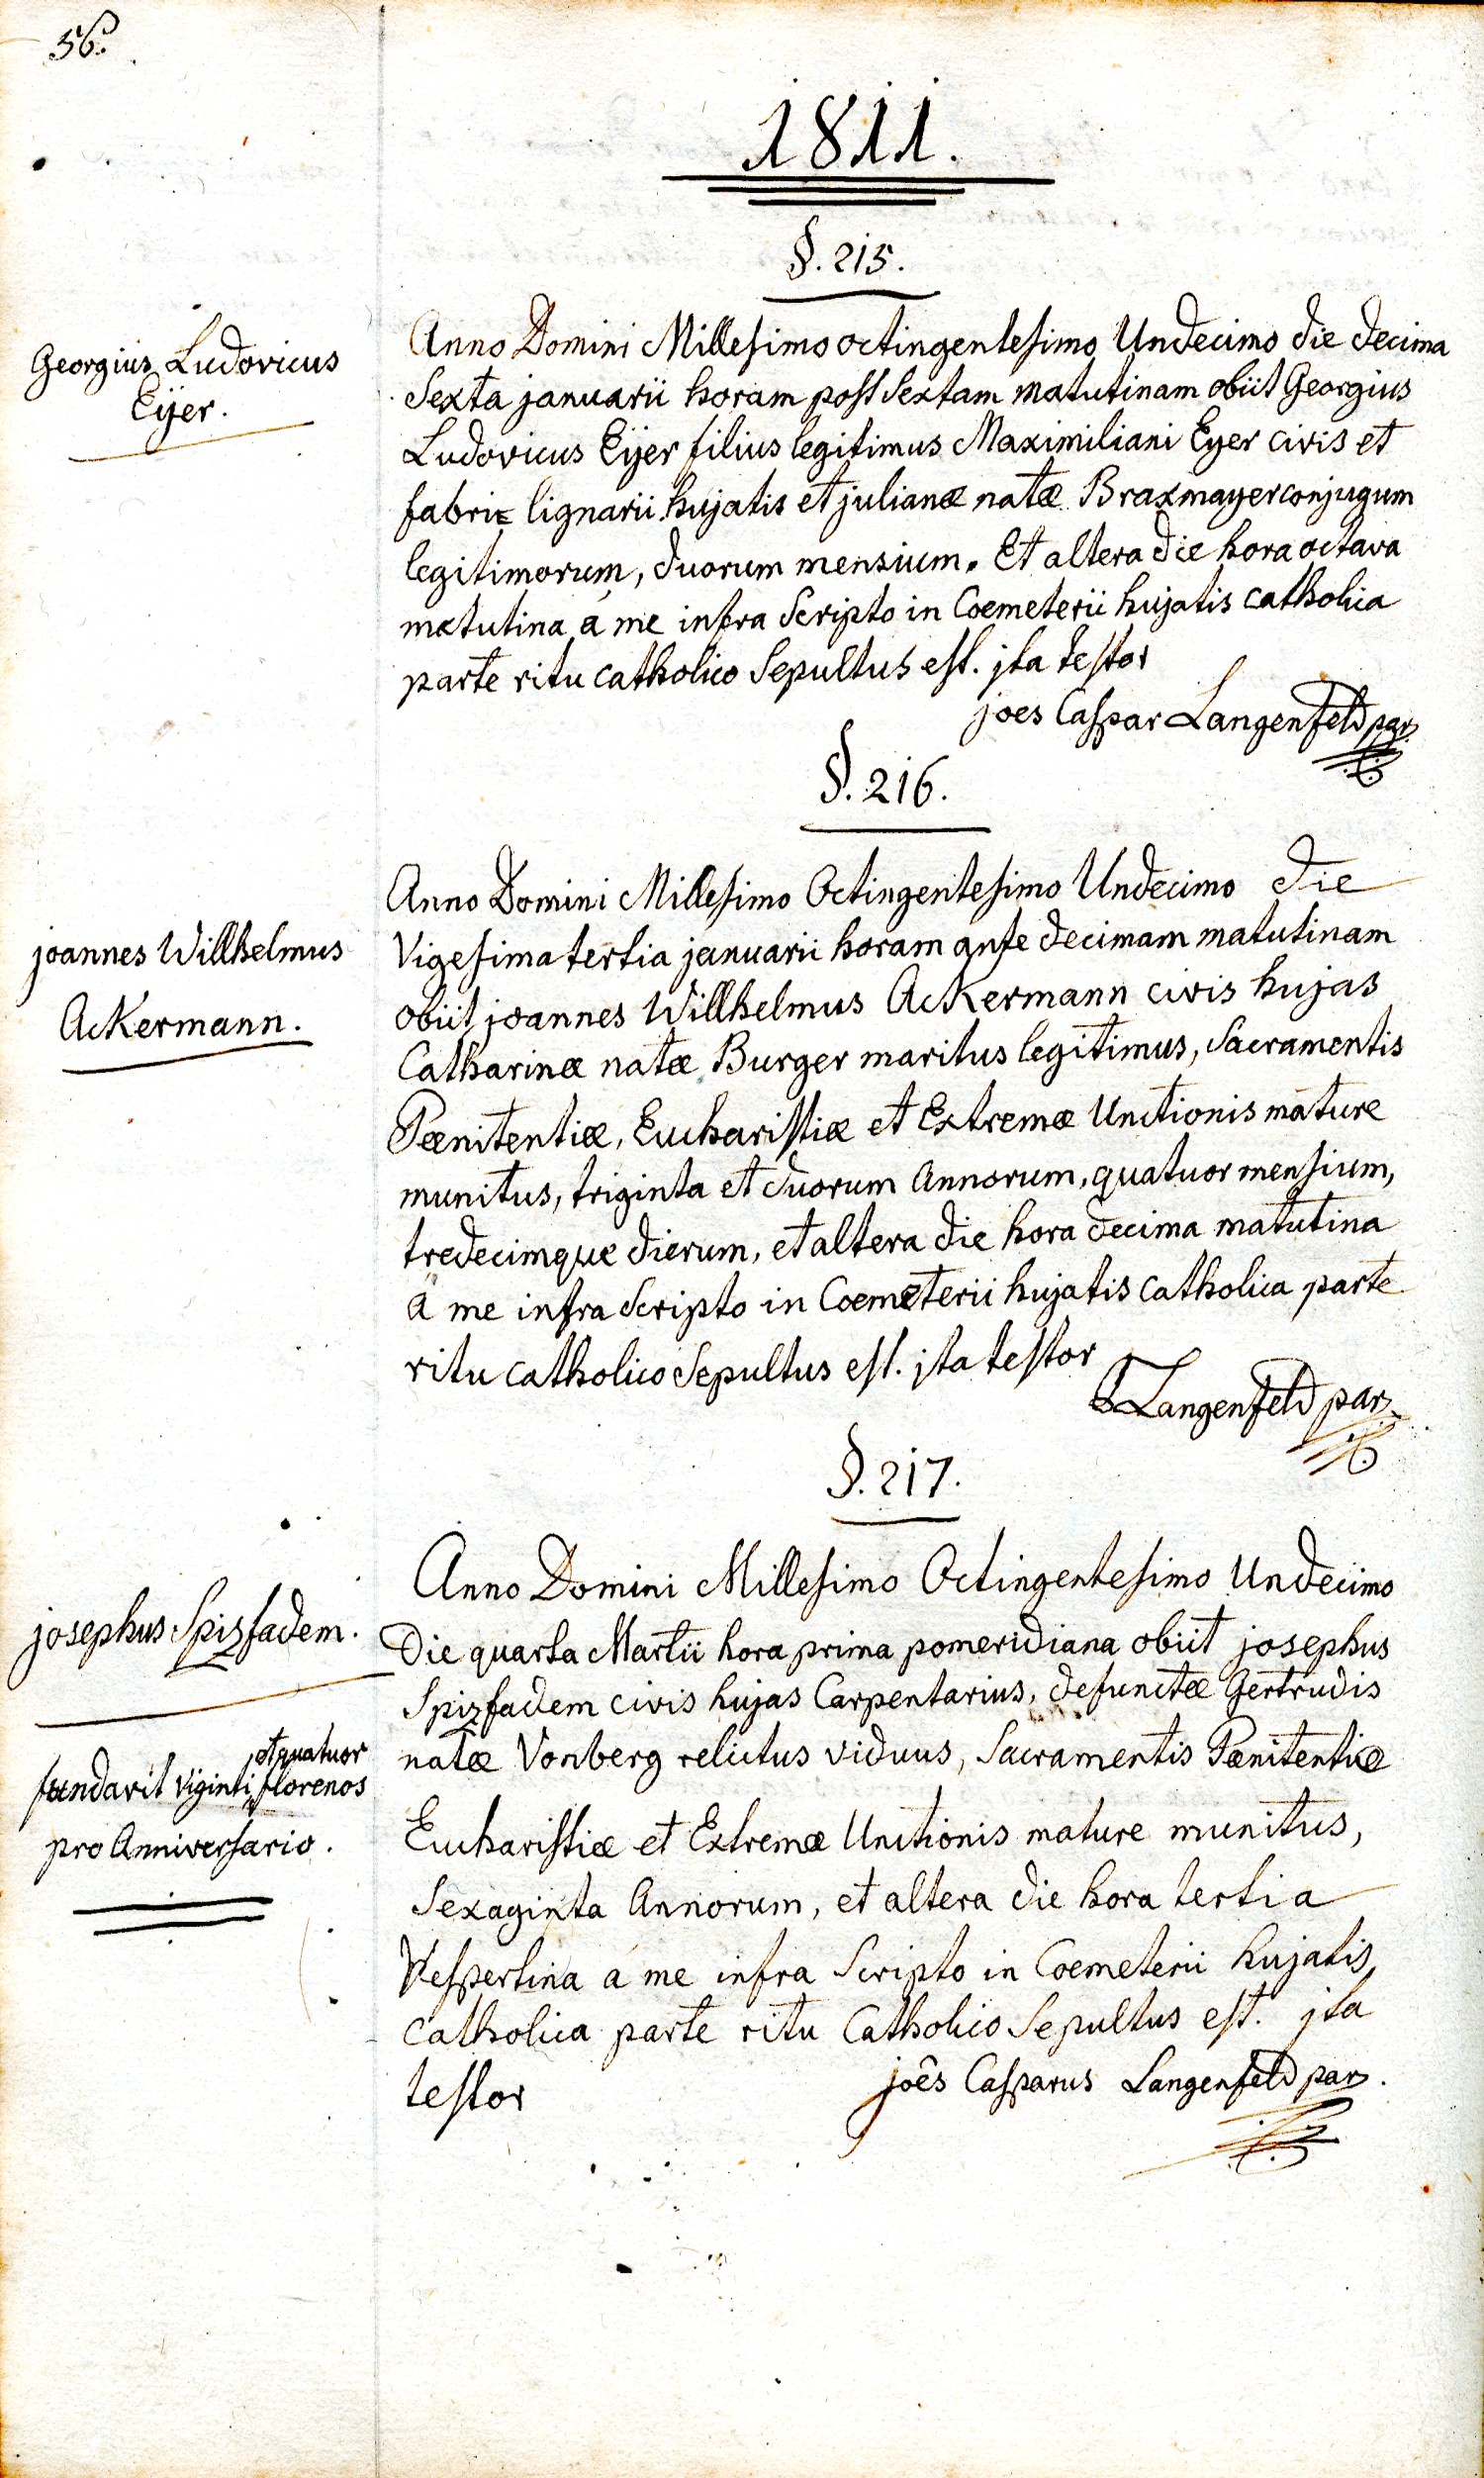 56.
1811.
§. 215.
Georgius Ludovicus
Eÿer.
Anno Domini Millesimo octingentesimo Undecimo die decima
Sexta januarii horam post Sextam matutinam obiit Georgius
Ludovicus Eÿer filius legitimus Maximiliani Eyer civis et
fabri lignarii hujatis et julianæ natæ Braxmayer conjugum
legitimorum, duorum mensium. Et altera die hora octava
matutina á me infra Scripto in Coemeterii hujatis catholica
parte ritu catholico Sepultus est. jta testor
joes Caspar Langenfeld par
§. 216.
joannes Willhelmus
Ackermann.
Anno Domini Millesimo Octingentesimo Undecimo die
Vigesima tertia januarii horam ante decimam matutinam
obiit joannes Willhelmus Ackermann civis hujas
Catharinæ natæ Burger maritus legitimus, Sacramentis
Pœnitentiæ, Eucharistiæ et Extremæ Unctionis mature
munitus, triginta et duorum Annorum, quatuor mensium,
tredecimque dierum, et altera die hora decima matutina
á me infra Scripto in Coemeterii hujatis catholica parte
ritu catholico Sepultus est. jta testor
Langenfeld par
§. 217.
josephus Spizfadem.
fundavit viginti et quatuor florenos
pro Anniversario.
Anno Domini Millesimo Octingentesimo Undecimo
Die quarta Martii hora prima pomeridiana obiit josephus
Spizfadem civis hujas Carpentarius, defunctæ Gertrudis
natæ Vonberg relictus viduus, Sacramentis Pœnitentiæ
Eucharistiæ et Extremæ Unctionis mature munitus,
Sexaginta Annorum, et altera die hora tertia
Vespertina á me infra Scripto in Coemeterii hujatis
catholica parte ritu Catholico Sepultus est. jta
testor joês Casparus Langenfeld par.